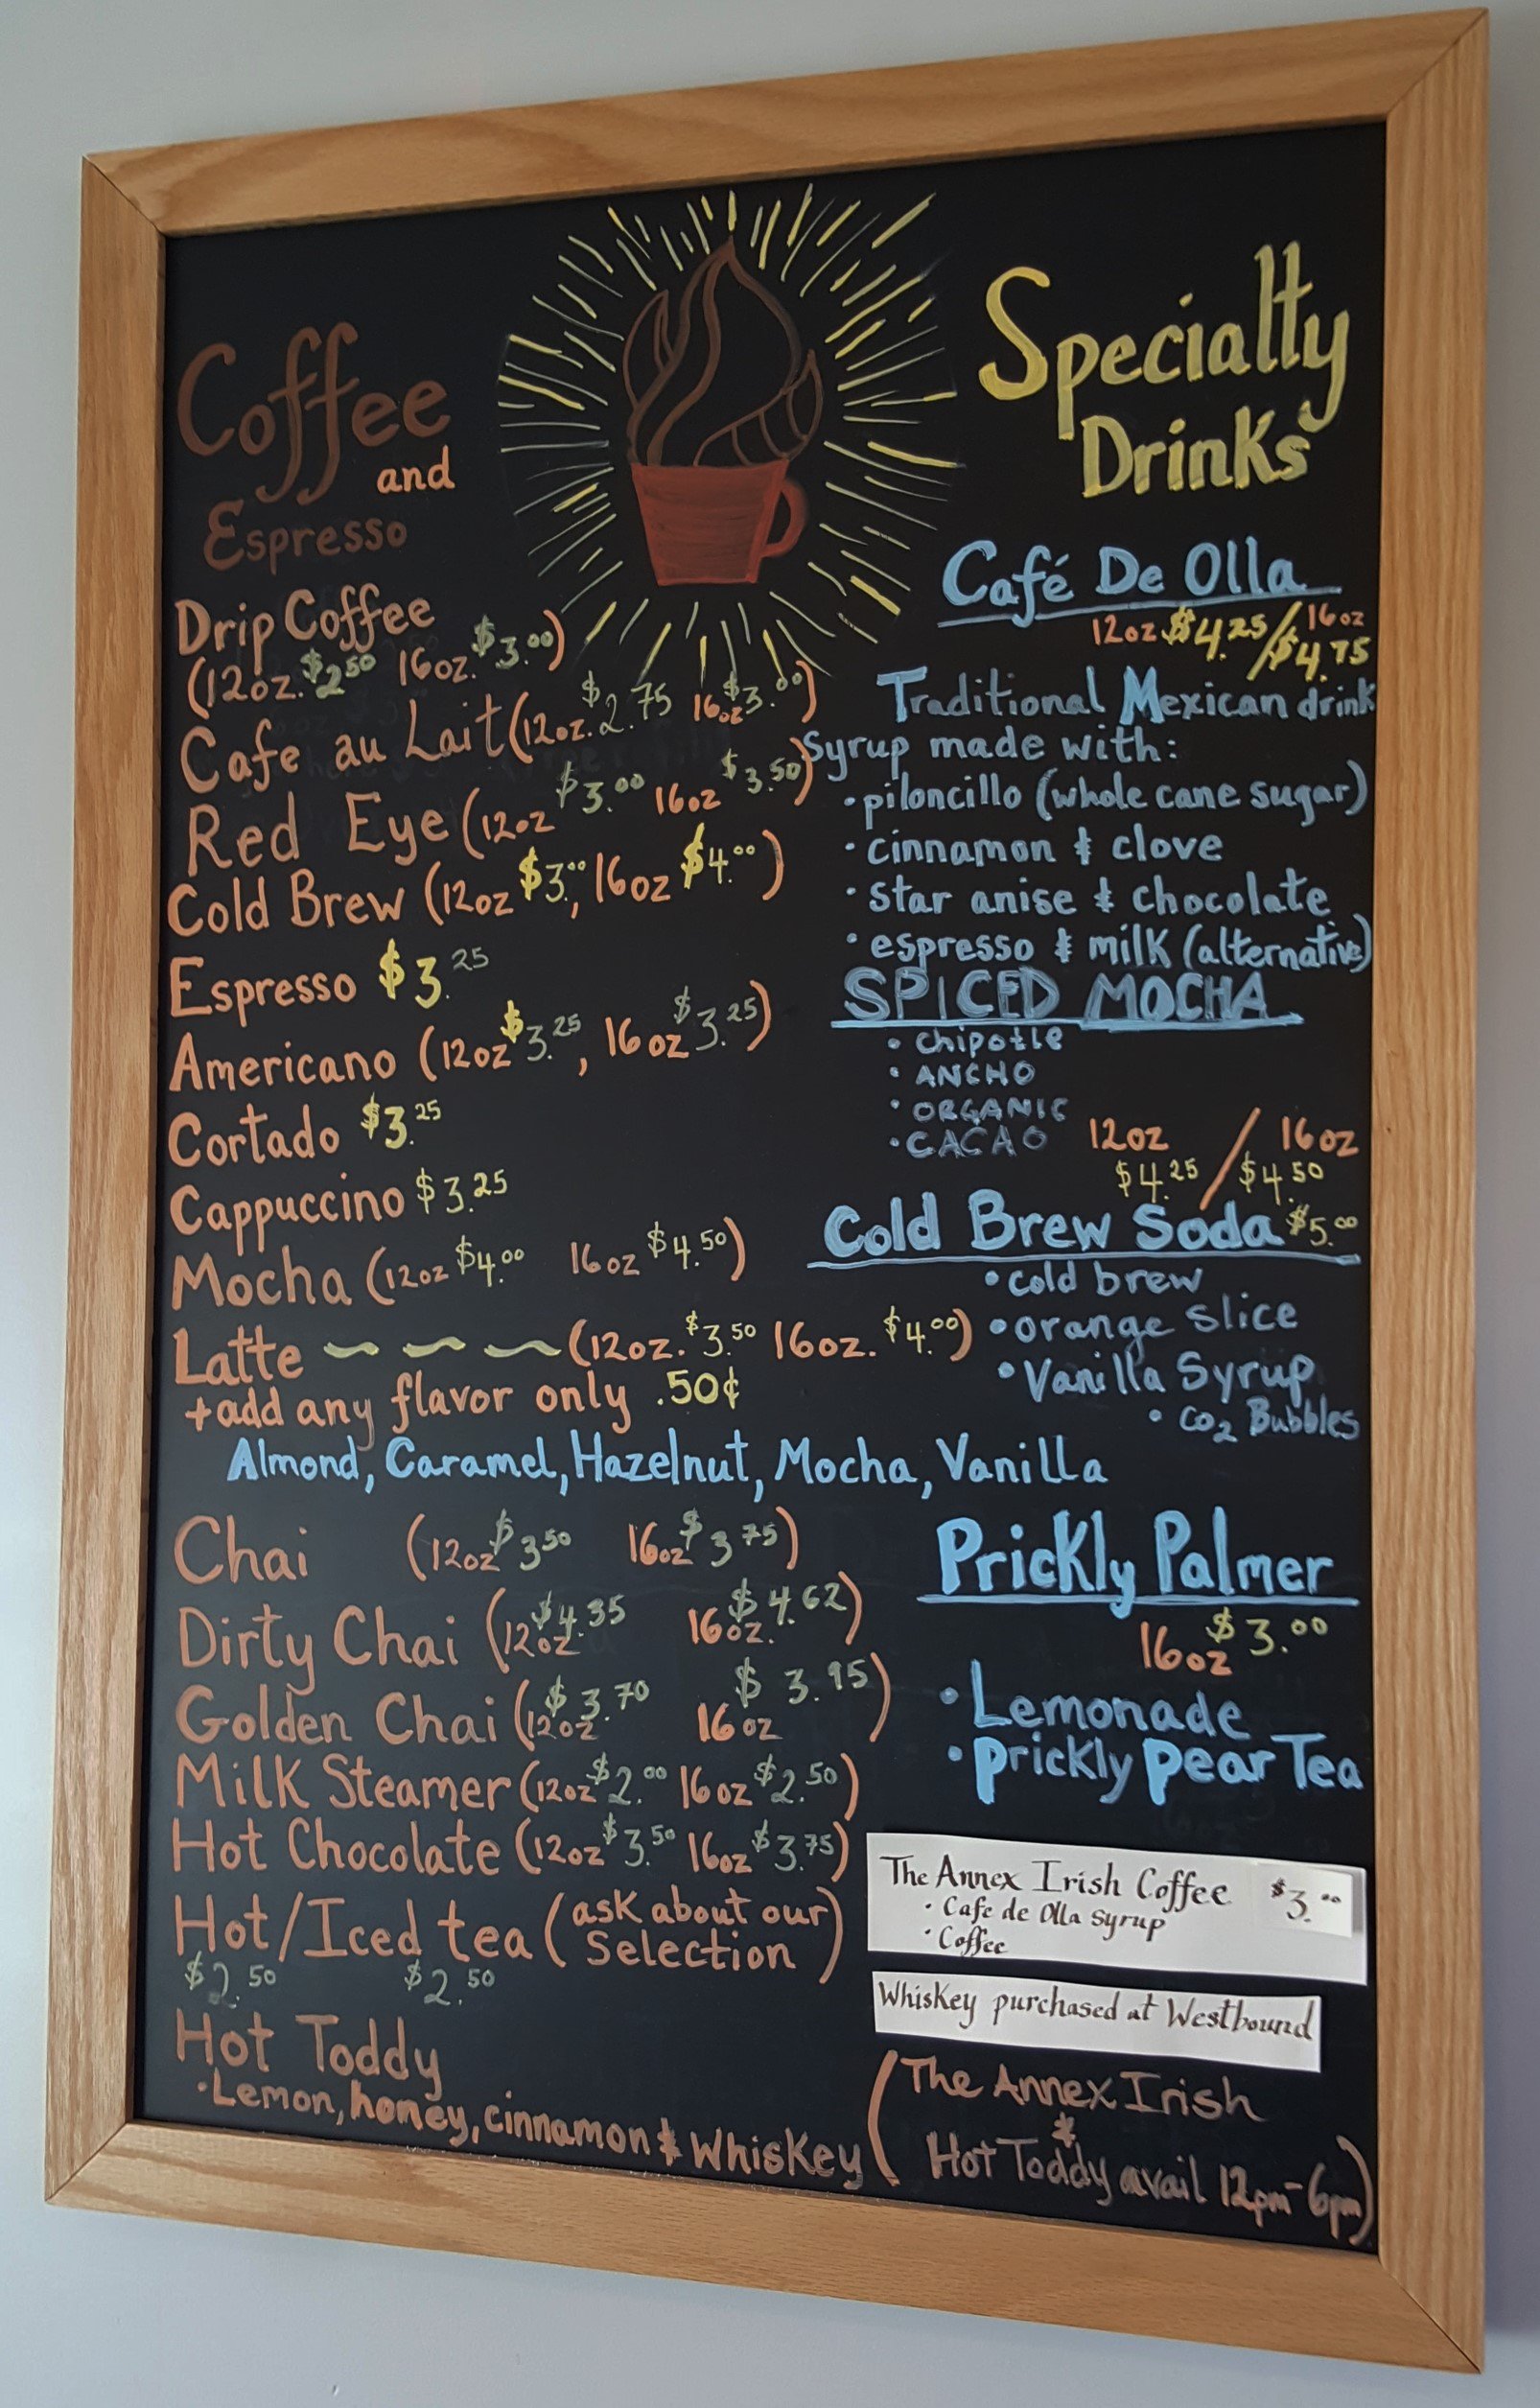 Coffee
and
Espresso
Drip Coffee
(12oz. $2.50 16oz. $3.00)
Cafe au Lait (12oz. $2.75 16oz $3.00)
Red Eye (12oz $3.00 16oz $3.50)
Cold Brew (12oz $3.00, 16oz $4.00)
Espresso $3.25
Americano (12oz $3.25, 16oz $3.25)
Cortado $3.25
Cappuccino $3.25
Mocha (12oz $4.00 16oz $4.50)
Latte ~ ~ ~ (12oz. $3.50 16oz. $4.00)
+add any flavor only .50¢
Almond, Caramel, Hazelnut, Mocha, Vanilla
Chai (12oz $3.50 16oz $3.75)
Dirty Chai (12oz $4.35 16oz. $4.62)
Golden Chai (12oz $3.70 16oz $3.95)
Milk Steamer (12oz $2.00 16oz $2.50)
Hot Chocolate (12oz $3.50 16oz $3.75)
Hot/Iced tea (ask about our
Selection)
$2.50 $2.50
Hot Toddy
·Lemon, honey, cinnamon & Whiskey
Specialty
Drinks
Café De Olla
12oz $4.25/16oz $4.75
Traditional Mexican drink
Syrup made with:
·piloncillo (whole cane sugar)
·cinnamon & clove
·star anise & chocolate
·espresso & milk (alternative)
SPICED MOCHA
·chipotle
·ANCHO
·ORGANIC
·CACAO 12oz / 16oz
$4.25 / $4.50
Cold Brew Soda $5.00
·cold brew
·orange slice
·Vanilla Syrup
·CO2 Bubbles
Prickly Palmer
16oz $3.00
·Lemonade
·prickly pear Tea
The Annex Irish Coffee $3.00
·Cafe de Olla syrup
·Coffee
Whiskey purchased at Westbound
(The Annex Irish
&
Hot Toddy avail 12pm-6pm)